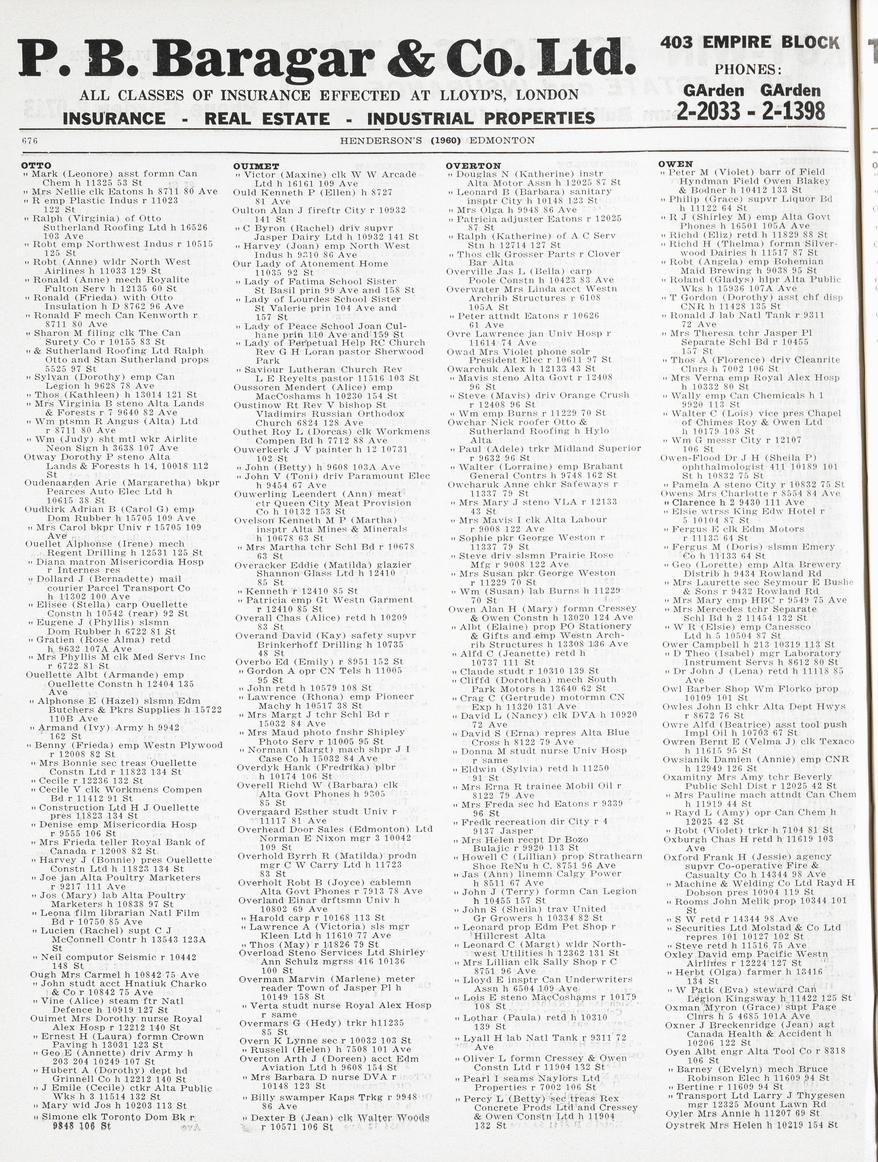 P. B. Baragar & Co. Ltd.
ALL CLASSES OF INSURANCE EFFECTED AT LLOYD'S, LONDON
INSURANCE - REAL ESTATE - INDUSTRIAL PROPERTIES
403 EMPIRE BLOCK
PHONES:
GArden GArden
2-2033 - 2-1398
676
HENDERSON'S (1960) EDMONTON
OTTO
" Mark (Leonore) asst formn Can
Chem h 11325 53 St
" Mrs Nellie clk Eatons h 8711 80 Ave
" R emp Plastic Indus r 11023
122 St
" Ralph (Virginia) of Otto
Sutherland Roofing Ltd h 16526
103 Ave
" Robt emp Northwest Indus r 10515
125 St
" Robt (Anne) wldr North West
Airlines h 11033 129 St
" Ronald (Anne) mech Royalite
Fulton Serv h 12135 60 St
" Ronald (Frieda) with Otto
Insulation h D 8762 96 Ave
" Ronald F mech Can Kenworth r
8711 80 Ave
" Sharon M filing clk The Can
Surety Co r 10155 83 St
" & Sutherland Roofing Ltd Ralph
Otto and Stan Sutherland props
5525 97 St
" Sylvan (Dorothy) emp Can
Legion h 9628 78 Ave
" Thos (Kathleen) h 13014 121 St
" Mrs Virginia B steno Alta Lands
& Forests r 7 9640 82 Ave
" Wm ptsmn R Angus (Alta) Ltd
r 8711 80 Ave
" Wm (Judy) sht mtl wkr Airlite
Neon Sign h 3638 107 Ave
Otway Dorothy P steno Alta
Lands & Forests h 14, 10018 112
St
Oudenaarden Arie (Margaretha) bkpr
Pearces Auto Elec Ltd h
10615 38 St
Oudkirk Adrian B (Carol G) emp
Dom Rubber h 15705 109 Ave
" Mrs Carol bkpr Univ r 15705 109
Ave
Ouellet Alphonse (Irene) mech
Regent Drilling h 12531 125 St
" Diana matron Misericordia Hosp
r Internes res
" Dollard J (Bernadette) mail
courier Parcel Transport Co
h 11302 100 Ave
" Elisee (Stella) carp Ouellette
Constn h 10542 (rear) 92 St
" Eugene J (Phyllis) slsmn
Dom Rubber h 6722 81 St
" Gratien (Rose Alma) retd
h 9632 107A Ave
" Mrs Phyllis M clk Med Servs Inc
r 6722 81 St
Ouellette Albt (Armande) emp
Ouellette Constn h 12404 135
Ave
" Alphonse E (Hazel) slsmn Edm
Butchers & Pkrs Supplies h 15722
110B Ave
" Armand (Ivy) Army h 9942
162 St
" Benny (Frieda) emp Westn Plywood
r 12008 82 St
" Mrs Bonnie sec treas Ouellette
Constn Ltd r 11823 134 St
" Cecile r 12236 132 St
" Cecile V clk Workmens Compen
Bd r 11412 91 St
" Construction Ltd H J Ouellette
pres 11823 134 St
" Denise emp Misericordia Hosp
r 9555 106 St
" Mrs Frieda teller Royal Bank of
Canada r 12008 82 St
" Harvey J (Bonnie) pres Ouellette
Constn Ltd h 11823 134 St
" Joe jan Alta Poultry Marketers
r 9217 111 Ave
" Jos (Mary) lab Alta Poultry
Marketers h 10838 97 St
" Leona film librarian Natl Film
Bd r 10750 85 Ave
" Lucien (Rachel) supt C J
McConnell Contr h 13543 123A
St
" Neil computor Seismic r 10442
148 St
Ough Mrs Carmel h 10842 75 Ave
" John studt acct Hnatiuk Charko
& Co r 10842 75 Ave
" Vine (Alice) steam ftr Natl
Defence h 10919 127 St
Ouimet Mrs Dorothy nurse Royal
Alex Hosp r 12212 140 St
" Ernest H (Laura) formn Crown
Paving h 13031 123 St
" Geo E (Annette) driv Army h
203 204 10249 107 St
" Hubert A (Dorothy) dept hd
Grinnell Co h 12212 140 St
" J Emile (Cecile) ctkr Alta Public
Wks h 3 11514 132 St
" Mary wid Jos h 10203 113 St
" Simone clk Toronto Dom Bk r
9848 106 St
OUIMET
" Victor (Maxine) clk W W Arcade
Ltd h 16161 109 Ave
Ould Kenneth P (Ellen) h 8727
81 Ave
Oulton Alan J fireftr City r 10932
141 St
" C Byron (Rachel) driv supvr
Jasper Dairy Ltd h 10932 141 St
" Harvey (Joan) emp North West
Indus h 9310 86 Ave
Our Lady of Atonement Home
11035 92 St
" Lady of Fatima School Sister
St Basil prin 99 Ave and 158 St
" Lady of Lourdes School Sister
St Valerie prin 104 Ave and
157 St
" Lady of Peace School Joan Cul-
hane prin 110 Ave and 159 St
" Lady of Perpetual Help RC Church
Rev G H Loran pastor Sherwood
Park
" Saviour Lutheran Church Rev
L E Reyelts pastor 11516 103 St
Oussoren Mendert (Alice) emp
MacCoshams h 10230 154 St
Oustinow Rt Rev V bishop St
Vladimirs Russian Orthodox
Church 6824 128 Ave
Outhet Roy L (Dorcas) clk Workmens
Compen Bd h 7712 88 Ave
Ouwerkerk J V painter h 12 10731
102 St
" John (Betty) h 9608 103A Ave
" John V (Toni) driv Paramount Elec
h 9454 67 Ave
Ouwerling Leendert (Ann) meat
ctr Queen City Meat Provision
Co h 10132 153 St
Ovelson Kenneth M P (Martha)
insptr Alta Mines & Minerals
h 10678 63 St
" Mrs Martha tchr Schl Bd r 10678
63 St
Overacker Eddie (Matilda) glazier
Shannon Glass Ltd h 12410
85 St
" Kenneth r 12410 85 St
" Patricia emp Gt Westn Garment
r 12410 85 St
Overall Chas (Alice) retd h 10209
83 St
Overand David (Kay) safety supvr
Brinkerhoff Drilling h 10735
48 St
Overbo Ed (Emily) r 8951 152 St
" Gordon A opr CN Tels h 11005
95 St
" John retd h 10579 108 St
" Lawrence (Rhona) emp Pioneer
Machy h 10517 38 St
" Mrs Margt J tchr Schl Bd r
15032 84 Ave
" Mrs Maud photo fnshr Shipley
Photo Serv r 11005 95 St
" Norman (Margt) mach shpr J I
Case Co h 15032 84 Ave
Overdyk Hank (Fredrika) plbr
h 10174 106 St
Overell Richd W (Barbara) clk
Alta Govt Phones h 9305
85 St
Overgaard Esther studt Univ r
11117 81 Ave
Overhead Door Sales (Edmonton) Ltd
Norman E Nixon mgr 3 10042
109 St
Overhold Byrrh R (Matilda) prodn
mgr C W Carry Ltd h 11723
83 St
Overholt Robt B (Joyce) cablemn
Alta Govt Phones r 7913 78 Ave
Overland Einar drftsmn Univ h
10802 69 Ave
" Harold carp r 10168 113 St
" Lawrence A (Victoria) sls mgr
Kleen Ltd h 11610 77 Ave
" Thos (May) r 11826 79 St
Overload Steno Services Ltd Shirley
Ann Schulz mgrss 416 10136
100 St
Overman Marvin (Marlene) meter
reader Town of Jasper Pl h
10149 158 St
" Verta studt nurse Royal Alex Hosp
r same
Overmars G (Hedy) trkr h11235
85 St
Overn K Lynne sec r 10032 103 St
" Russell (Helen) h 7508 101 Ave
Overton Arth J (Doreen) acct Edm
Aviation Ltd h 9608 154 St
" Mrs Barbara D nurse DVA r
10148 123 St
" Billy swamper Kaps Trkg r 9948
86 Ave
" Dexter B (Jean) clk Walter Woods
r 10571 106 St
OVERTON
" Douglas N (Katherine) instr
Alta Motor Assn h 12025 87 St
" Leonard B (Barbara) sanitary
insptr City h 10148 123 St
" Mrs Olga h 9948 86 Ave
" Patricia adjuster Eatons r 12025
87 St
" Ralph (Katherine) of A C Serv
Stn h 12714 127 St
" Thos clk Grosser Parts r Clover
Bar Alta
Overville Jas L (Bella) carp
Poole Constn h 10423 83 Ave
Overwater Mrs Linda acct Westn
Archrib Structures r 6108
105A St
" Peter attndt Eatons r 10626
61 Ave
Ovre Lawrence jan Univ Hosp r
11614 74 Ave
Owad Mrs Violet phone solr
President Elec r 10611 97 St
Owarchuk Alex h 12133 43 St
" Mavis steno Alta Govt r 12408
96 St
" Steve (Mavis) driv Orange Crush
r 12408 96 St
" Wm emp Burns r 11229 70 St
Owchar Nick roofer Otto &
Sutherland Roofing h Hylo
Alta
" Paul (Adele) trkr Midland Superior
r 9632 96 St
" Walter (Lorraine) emp Brabant
General Contrs h 9748 162 St
Owcharuk Anne chkr Safeways r
11337 79 St
" Mrs Mary J steno VLA r 12133
43 St
" Mrs Mavis I clk Alta Labour
r 9008 122 Ave
" Sophie pkr George Weston r
11337 79 St
" Steve driv slsmn Prairie Rose
Mfg r 9008 122 Ave
" Mrs Susan pkr George Weston
r 11229 70 St
" Wm (Susan) lab Burns h 11229
70 St
Owen Alan H (Mary) formn Cressey
& Owen Constn h 13020 124 Ave
" Albt (Elaine) prop PO Stationery
& Gifts and emp Westn Arch-
rib Structures h 13308 136 Ave
" Alfd C (Jeanette) retd h
10737 111 St
" Claude studt r 10310 139 St
" Cliffd (Dorothea) mech South
Park Motors h 13640 62 St
" Crag C (Gertrude) motormn CN
Exp h 11320 131 Ave
" David L (Nancy) clk DVA h 10920
72 Ave
" David S (Erna) repres Alta Blue
Cross h 8122 79 Ave
" Donna M studt nurse Univ Hosp
r same
" Eldwin (Sylvia) retd h 11250
91 St
" Mrs Erna R trainee Mobil Oil r
8122 79 Ave
" Mrs Freda sec hd Eatons r 9339
96 St
" Fredk recreation dir City r 4
9137 Jasper
" Mrs Helen recpt Dr Bozo
Bulajic r 9920 113 St
" Howell C (Lillian) prop Strathearn
Shoe ReNu h C, 8751 96 Ave
" Jas (Ann) linemn Calgy Power
h 8511 67 Ave
" John J (Terry) formn Can Legion
h 10455 157 St
" John S (Sheila) trav United
Gr Growers h 10334 82 St
" Leonard prop Edm Pet Shop r
Hillcrest Alta
" Leonard C (Margt) wldr North-
west Utilities h 12362 131 St
" Mrs Lillian clk Sally Shop r C
8751 96 Ave
" Lloyd E insptr Can Underwriters
Assn h 6504 109 Ave
" Lois E steno MacCoshams r 10179
108 St
" Lothar (Paula) retd h 10310
139 St
" Lyall H lab Natl Tank r 9311 72
Ave
" Oliver L formn Cressey & Owen
Constn Ltd r 11904 132 St
" Pearl I seams Naylors Ltd
Properties r 7002 106 St
" Percy L (Betty) sec treas Rex
Concrete Prods Ltd and Cressey
& Owen Constn Ltd h 11904
132 St
OWEN
" Peter M (Violet) barr of Field
Hyndman Field Owen Blakey
& Bodner h 10412 133 St
" Philip (Grace) supvr Liquor Bd
h 11122 64 St
" R J (Shirley M) emp Alta Govt
Phones h 16501 105A Ave
" Richd (Eliz) retd h 11829 88 St
" Richd H (Thelma) formn Silver-
wood Dairies h 11517 87 St
" Robt (Angela) emp Bohemian
Maid Brewing h 9038 95 St
" Roland (Gladys) hlpr Alta Public
Wks h 15936 107A Ave
" T Gordon (Dorothy) asst chf disp
CNR h 11428 135 St
" Ronald J lab Natl Tank r 9311
72 Ave
" Mrs Theresa tchr Jasper Pl
Separate Schl Bd r 10455
157 St
" Thos A (Florence) driv Cleanrite
Clnrs h 7002 106 St
" Mrs Verna emp Royal Alex Hosp
h 10332 80 St
" Wally emp Can Chemicals h 1
9920 113 St
" Walter C (Lois) vice pres Chapel
of Chimes Roy & Owen Ltd
h 10179 108 St
" Wm G messr City r 12107
106 St
Owen-Flood Dr J H (Sheila P)
ophthalmologist 411 10189 101
St h 10832 75 St
" Pamela A steno City r 10832 75 St
Owens Mrs Charlotte r 8554 84 Ave
" Clarence h 2 9430 111 Ave
" Elsie wtrss King Edw Hotel r
5 10104 87 St
" Fergus E clk Edm Motors
r 11133 64 St
" Fergus M (Doris) slsmn Emery
Co h 11133 64 St
" Geo (Lorette) emp Alta Brewery
Distrib h 9434 Rowland Rd
" Mrs Laurette sec Seymour E Bushe
& Sons r 9432 Rowland Rd
" Mrs Mary emp HBC r 9549 75 Ave
" Mrs Mercedes tchr Separate
Schl Bd h 2 11454 132 St
" W R (Elsie) emp Canessco
Ltd h 5 10504 87 St
Ower Campbell h 213 10319 113 St
" D Theo (Isabel) mgr Laboratory
Instrument Servs h 8612 80 St
" Dr John J (Lena) retd h 11118 85
Ave
Owl Barber Shop Wm Florko prop
10109 101 St
Owles John B chkr Alta Dept Hwys
r 8672 76 St
Owre Alfd (Beatrice) asst tool push
Impl Oil h 10703 67 St
Owren Bernt E (Velma J) clk Texaco
h 11615 95 St
Owsianik Damien (Annie) emp CNR
h 12949 126 St
Oxamitny Mrs Amy tchr Beverly
Public Schl Dist r 12025 42 St
" Mrs Pauline mach attndt Can Chem
h 11919 44 St
" Rayd L (Amy) opr Can Chem h
12025 42 St
" Robt (Violet) trkr h 7104 81 St
Oxburgh Chas H retd h 11619 103
Ave
Oxford Frank H (Jessie) agency
supvr Co-operative Fire &
Casualty Co h 14344 98 Ave
" Machine & Welding Co Ltd Rayd H
Dobson pres 10904 119 St
" Rooms John Melik prop 10344 101
St
" S W retd r 14344 98 Ave
" Securities Ltd Molstad & Co Ltd
repres 101 10127 102 St
" Steve retd h 11516 75 Ave
Oxley David emp Pacific Westn
Airlines r 12224 127 St
" Herbt (Olga) farmer h 13416
134 St
" W Patk (Eva) steward Can
Legion Kingsway h 11422 125 St
Oxman Myron (Grace) supt Page
Clnrs h 5 4685 101A Ave
Oxner J Breckenridge (Jean) agt
Canada Health & Accident h
10206 122 St
Oyen Albt engr Alta Tool Co r 8318
106 St
" Barney (Evelyn) mech Bruce
Robinson Elec h 11609 94 St
" Bertine r 11609 94 St
" Transport Ltd Larry J Thygesen
mgr 12325 Mount Lawn Rd
Oyler Mrs Annie h 11207 69 St
Oystrek Mrs Helen h 10219 154 St